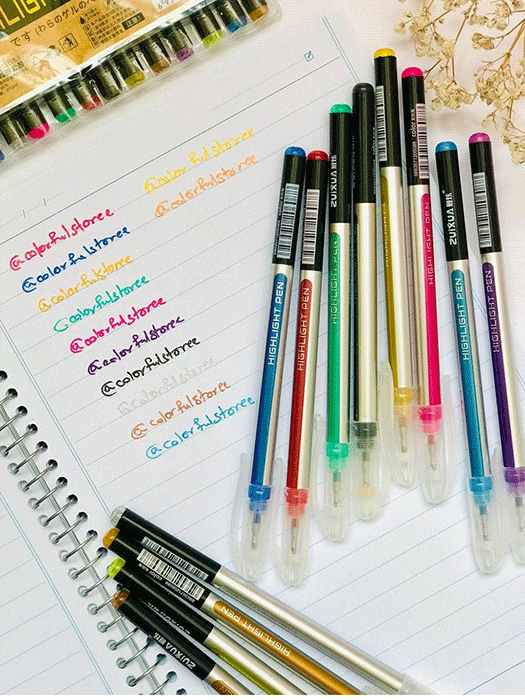 LIGHT
@colorfulstoree
@colorfulstoree
@colorfulstoree
@colorfulstoree
@colorfulstoree
@colorfulstoree
@colorfulstoree
@colorfulstoree
@colorfulstoree
@colorfulstoree
@colorfulstoree
@colorfulstoree
HIGHLIGHT PEN
HIGHLIGHT PEN
ZUIXUA
HIGHLIGHT PEN
HIGHLIGHT PEN
color
HIGHLIGHT PEN
ZUIXUA
HIGHLIGHT PEN
HIGHLIGHT PEN
color
HIGHLIGHT PEN
ZUIXUA
HIGHLIGHT PEN